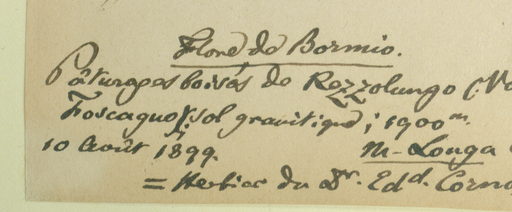 Flore de Bormio.
Pâturages boisés de Rezzolungo (:Va
Foscagno): sol granitique; 1900 m.
10 Août 1899. M. Longa
= Herbier du Dr. Edd. Corna